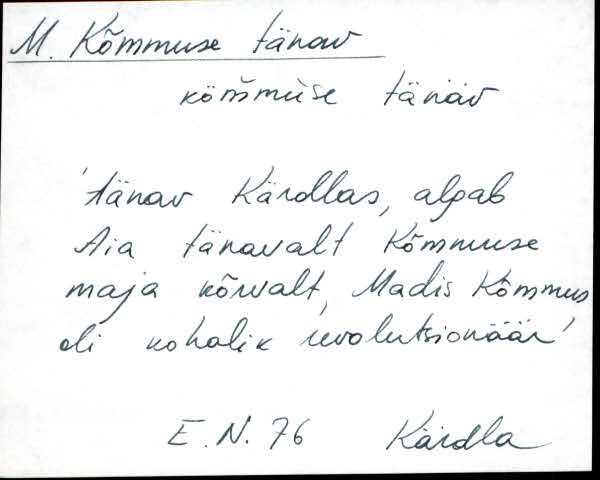 M. Kõmmuse tänav
kömmuse tänav
'tänav Kärdlas, algab
Aia tänavalt Kõmmuse
maja kõrvalt, Madis Kõmmus
oli kohalik revolutsionäär'
E.N. 76 Kärdla